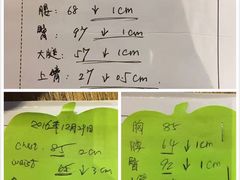 腰: 68 ↓ 1cm
臀: 97 ↓ 1cm
大腿: 57 ↓ 1cm
上臂: 27 ↓ 0.5cm
2016年12月29日
chest 85 2cm
waist 65 ↓ 3cm
胸 85
腰 64 ↓ 1cm
臀 92 ↓ 1cm